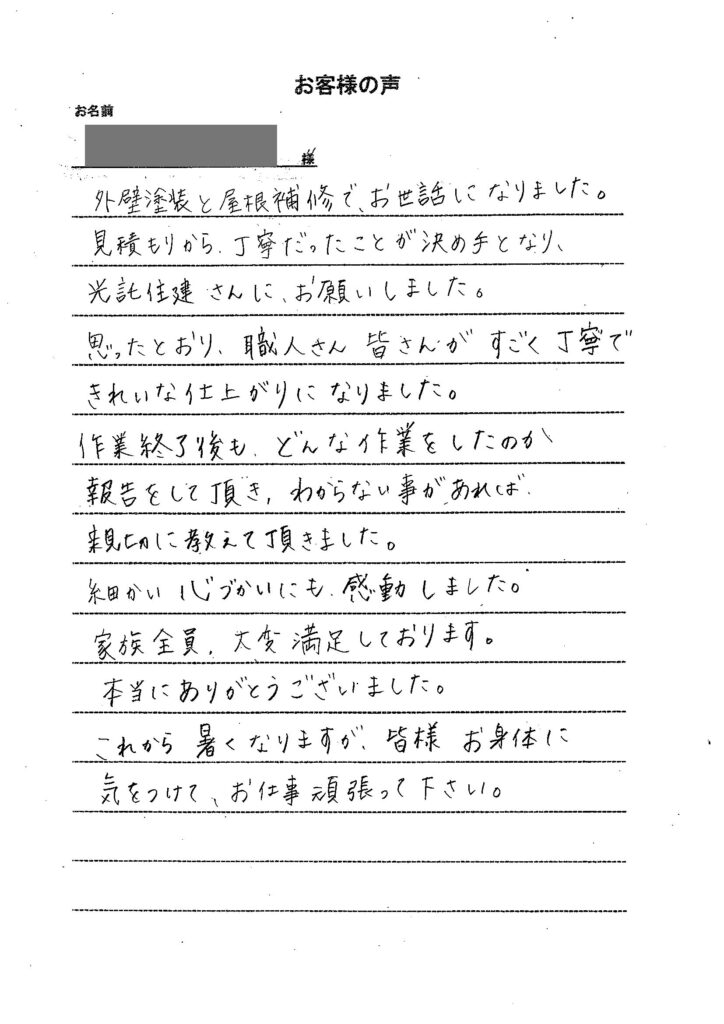 お客様の声
お名前
様
外壁塗装と屋根補修で、お世話になりました。
見積もりから、丁寧だったことが決め手となり、
光託住建さんに、お願いしました。
思ったとおり、職人さん 皆さんが すごく丁寧で
きれいな仕上がりになりました。
作業終了後も、どんな作業をしたのか
報告をして頂き、わからない事があれば、
親切に教えて頂きました。
細かい心づかいにも、感動しました。
家族全員、大変満足しております。
本当にありがとうございました。
これから 暑くなりますが、皆様 お身体に
気をつけて、お仕事頑張って下さい。